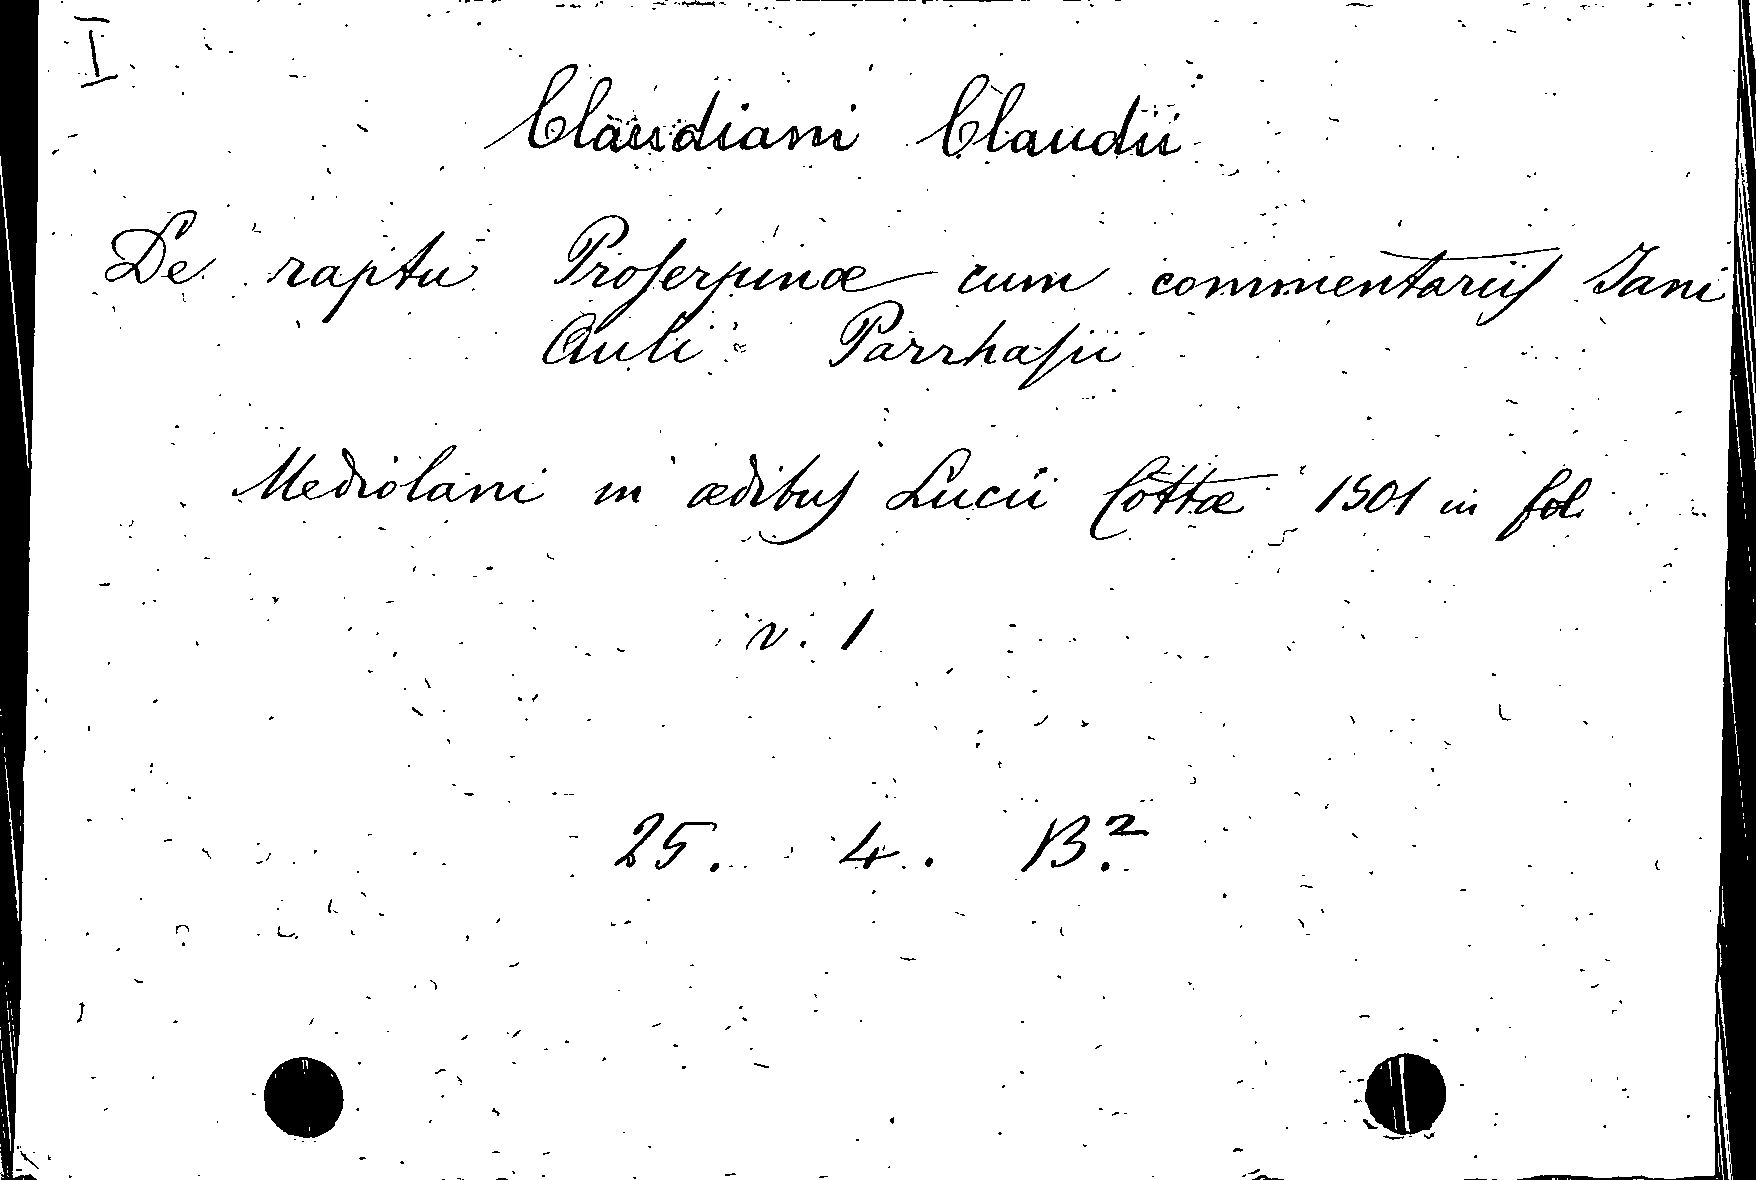 I
Claudiani Claudii
De raptu Proserpinæ cum commentariis Jani
Auli Parrhasii
Mediolani in ædibus Lucii Cottæ 1501 in fol.
v. 1
25. 4. B.²